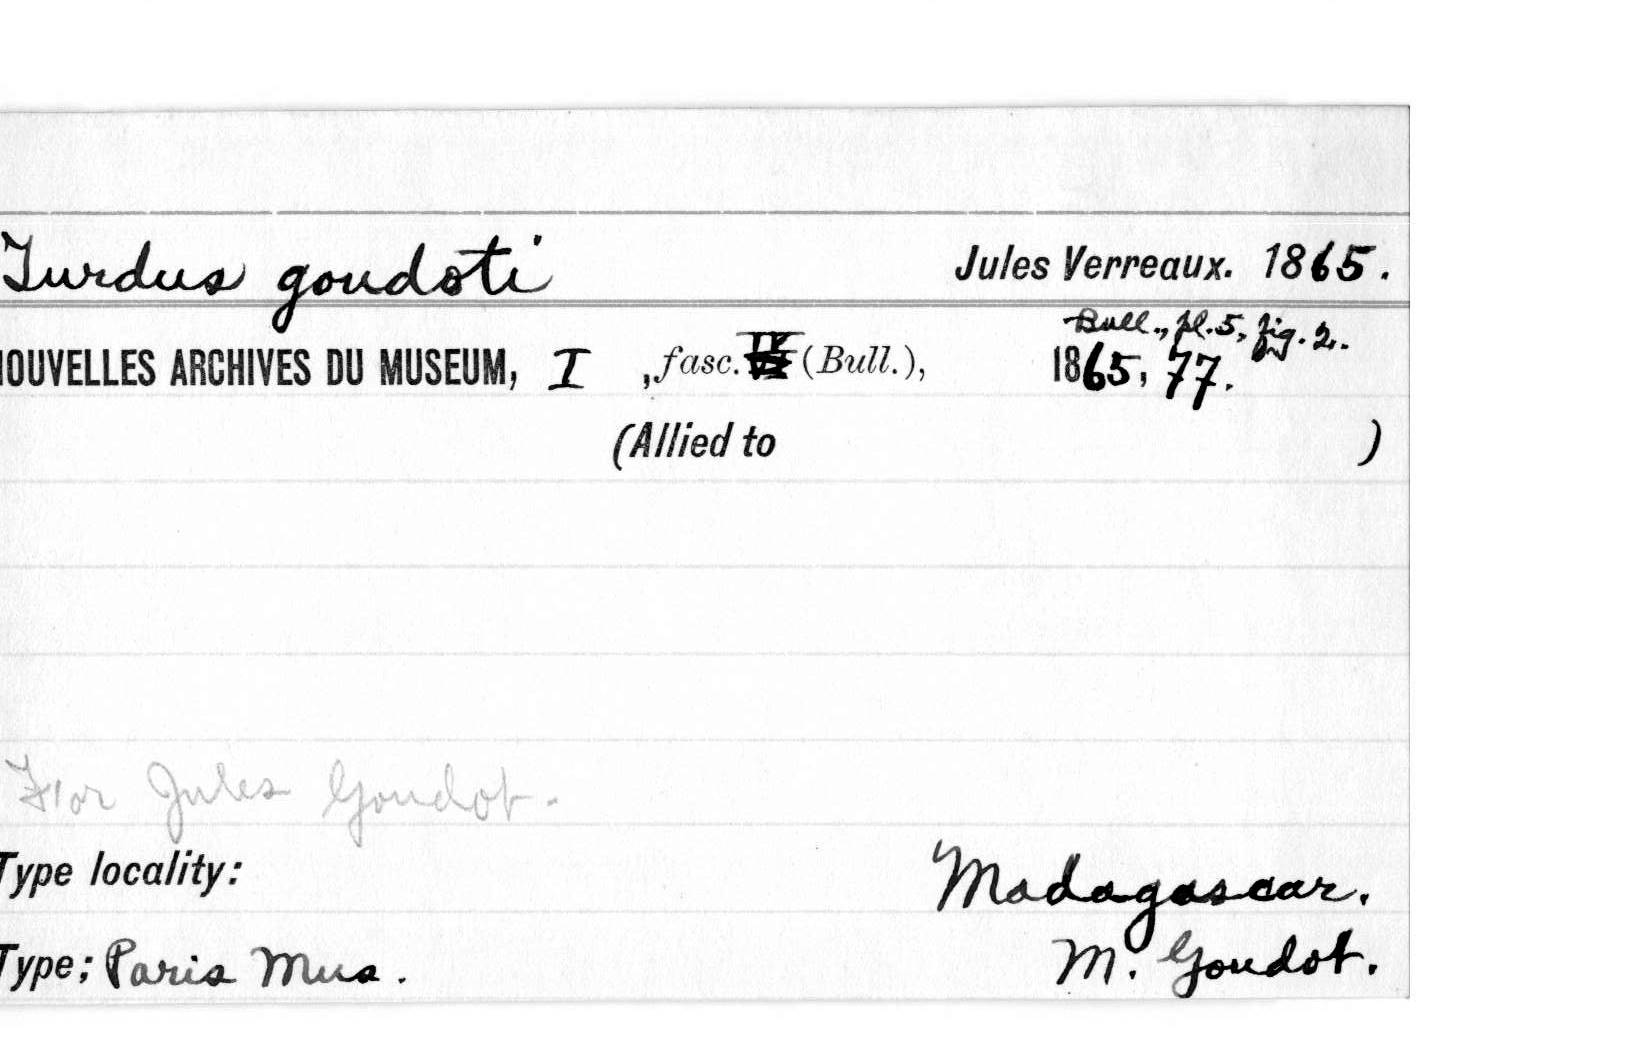 Turdus goudoti Jules Verreaux. 1865.
Bull., pl. 5, fig. 2.
NOUVELLES ARCHIVES DU MUSEUM, I , fasc. (Bull.), 1865, 77.
(Allied to )
For Jules Goudot.
Type locality: Madagascar.
Type; Paris Mus. M. Goudot.